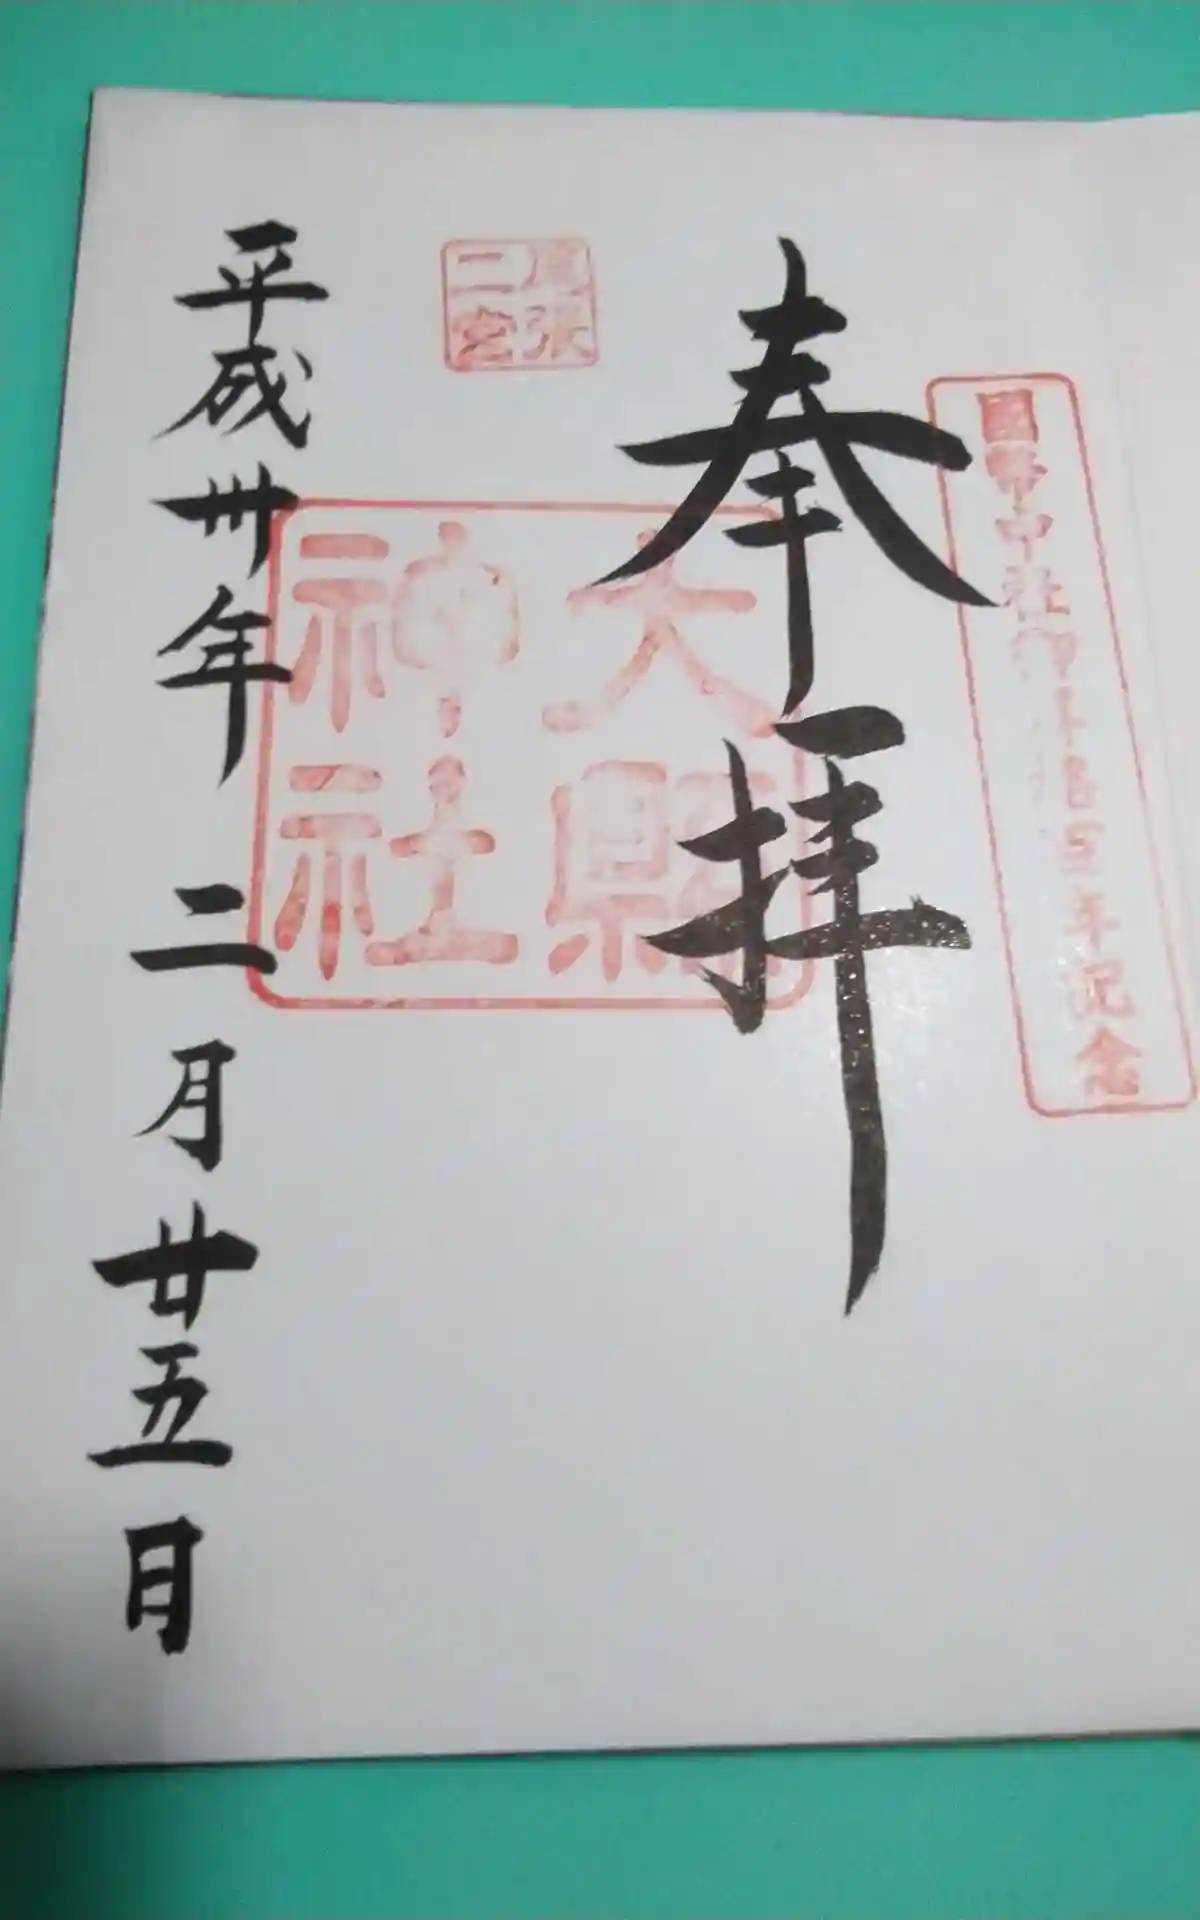 國幣中社御昇格百年記念
奉拝
尾張
二宮
大縣
神社
平成卅年二月廿五日